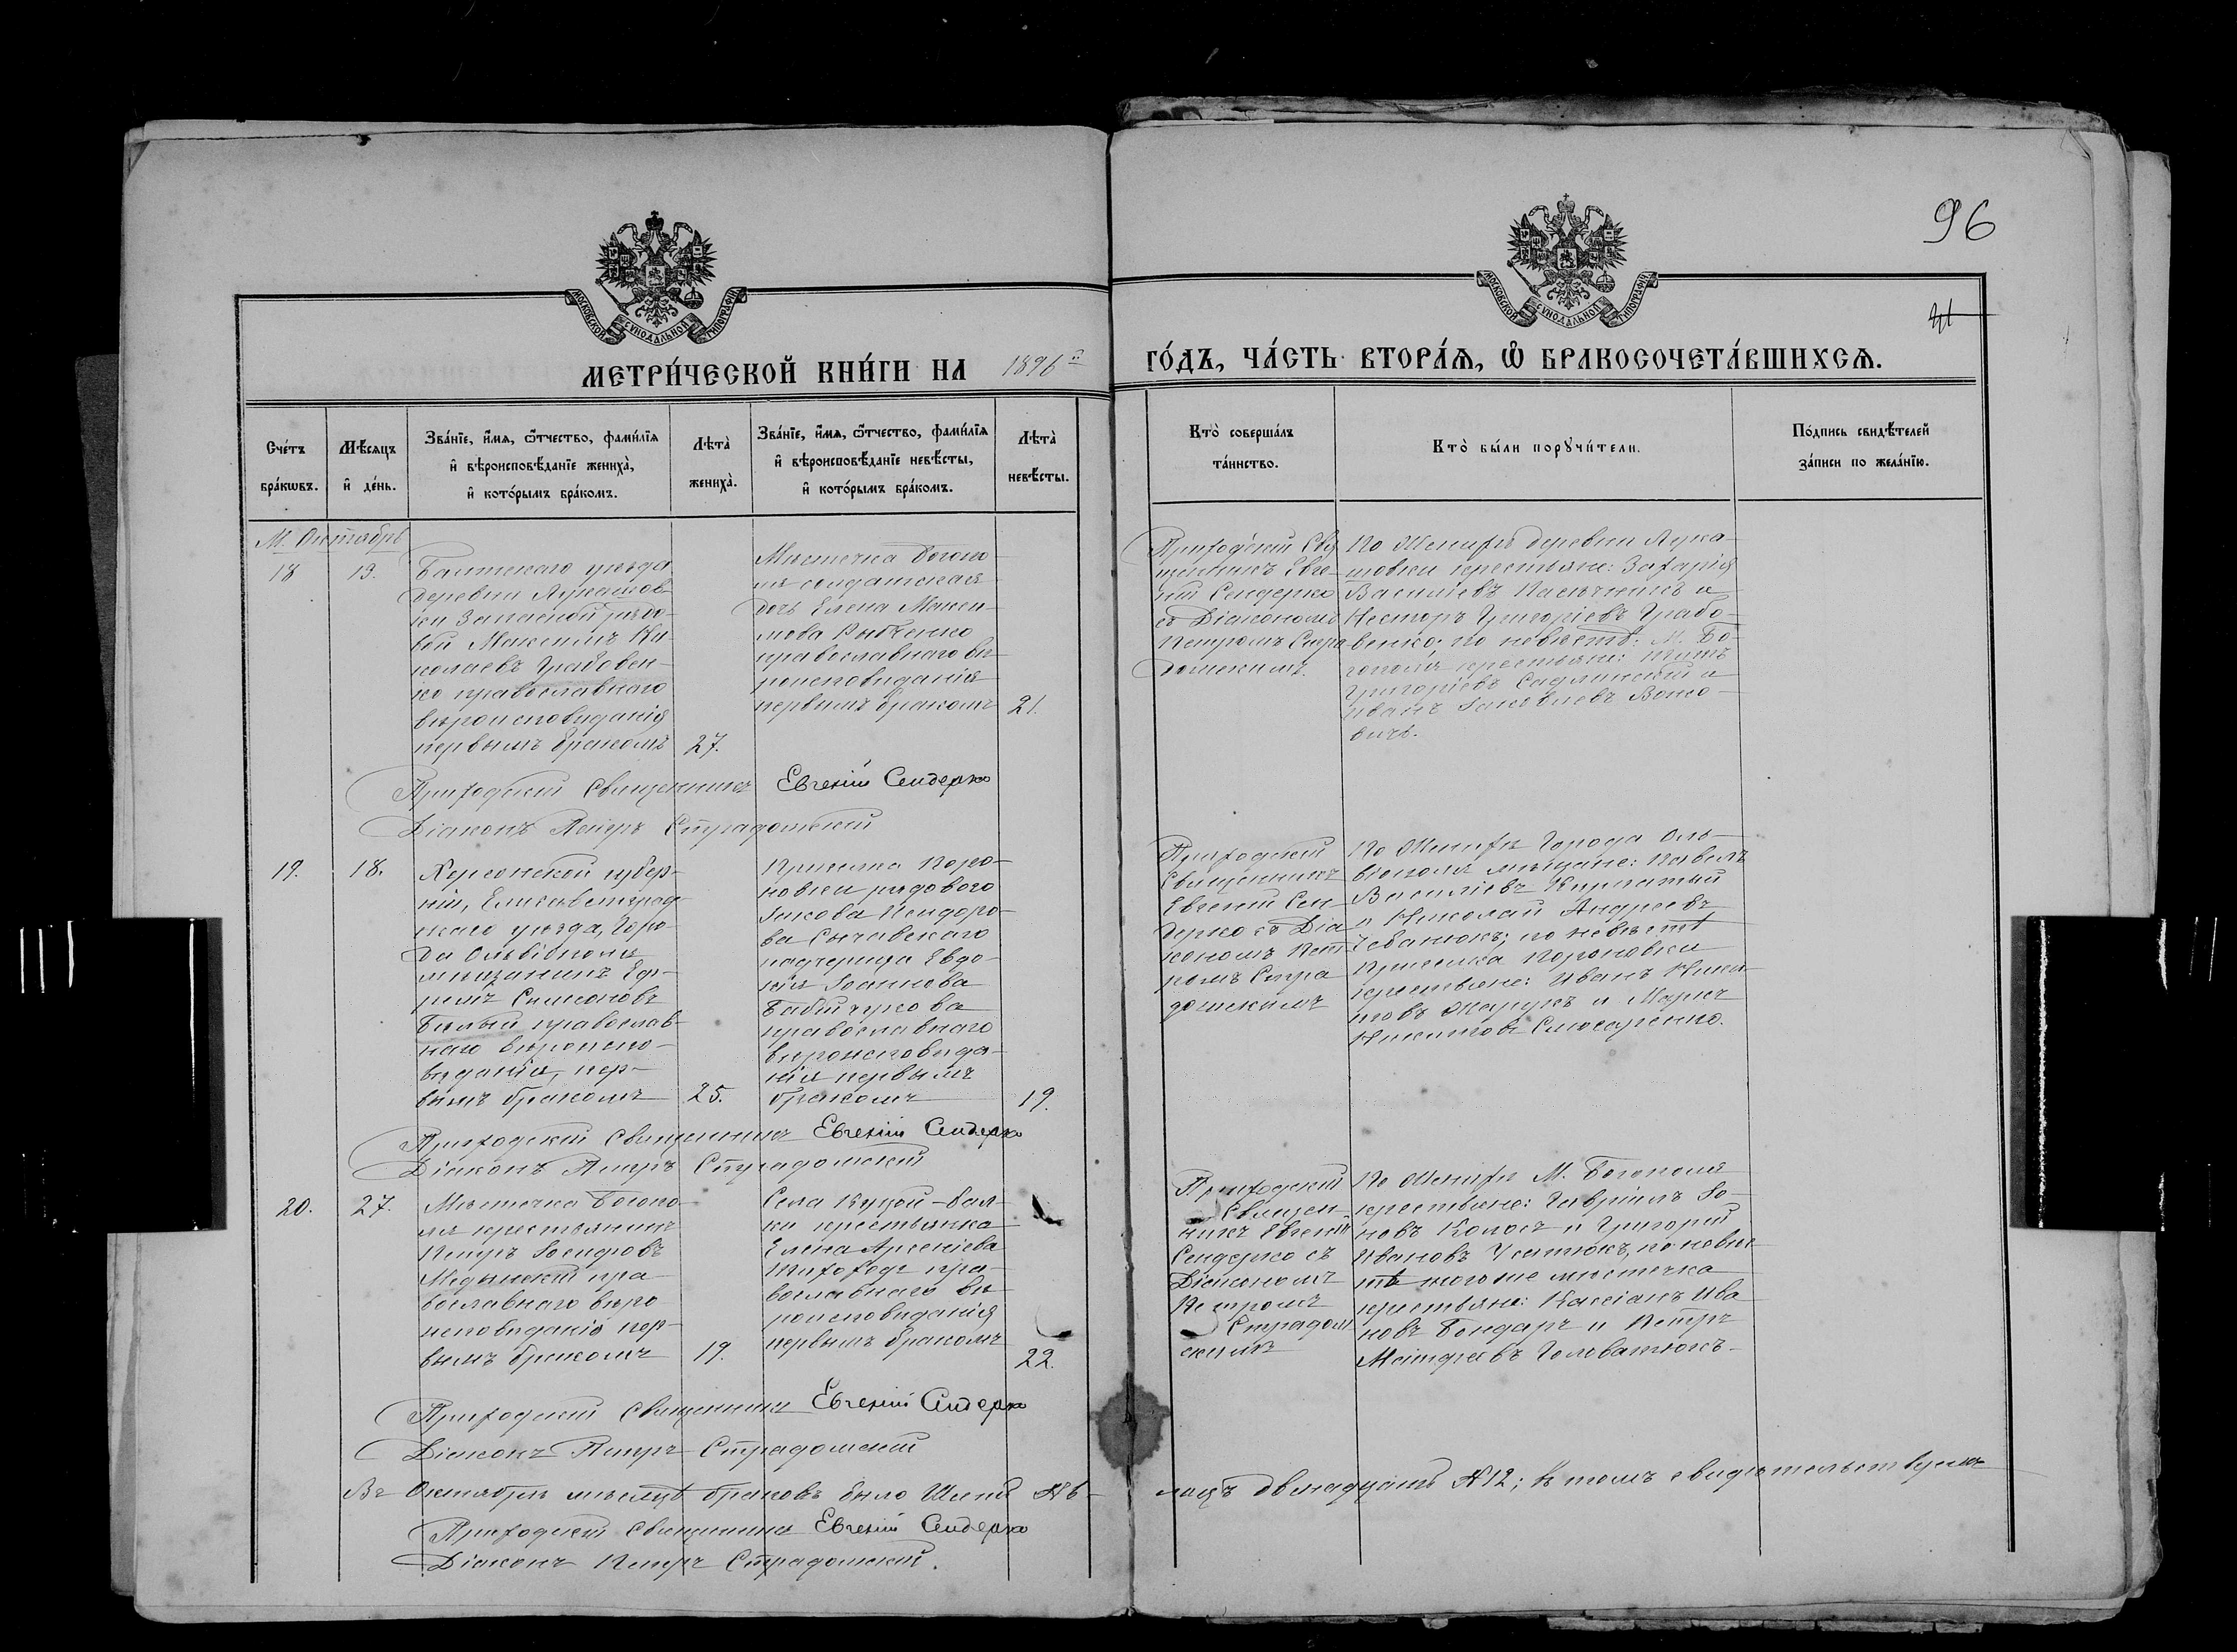 96
41
МОСКОВСКОЙ СѴНОДАЛЬНОЙ ТИПОГРАФІИ
МОСКОВСКОЙ СѴНОДАЛЬНОЙ ТИПОГРАФІИ
МЕТРИ́ЧЕСКОЙ КНИ́ГИ НА 1896й ГО́ДЪ, ЧА́СТЬ ВТОРА́Ѧ, Ѽ БРАКОСОЧЕТА́ВШИХСѦ.
Сче́тъ
бра́кѡвъ.
Мѣ́сяцъ
и҆ де́нь.
Зва́нїе, и҆́мя, ѻ҆́тчество, фами́лїя
и҆ вѣроисповѣ́данїе жениха̀,
и҆ кото́рымъ бра́комъ.
Лѣта̀
жениха̀.
Зва́нїе, и҆́мя, ѻ҆́тчество, фами́лїя
и҆ вѣроисповѣ́данїе невѣ́сты,
и҆ кото́рымъ бра́комъ.
Лѣта̀
невѣ́сты.
Кто̀ соверша́лъ
та́инство.
Кто̀ бы́ли порꙋчи́тели.
По́дпись свидѣ́телей
за́писи по жела́нїю.
М. Октябрь
18
13.
Балтскаго уѣзда
деревни Лукашов-
ки Запасной рядо-
вой Максимъ Ни-
колаевъ Грабовен-
ко православнаго
вѣроисповѣданія
первымъ бракомъ
27.
Мѣстечка Богопо-
ля солдатская
дочь Елена Макси-
мова Рыбченко
православнаго вѣ-
роисповѣданія
первымъ бракомъ
21.
Приходскій Свя
щенникъ Евге-
ній Сендерко
съ Діакономъ
Петромъ Стра
домскимъ.
По Женихѣ деревни Лука-
шовки крестьяне: Захарія
Василіевъ Пасѣчникъ и
Несторъ Григоріевъ Грабо-
венко; по невѣстѣ: М. Бо-
гополя крестьяне: Титъ
Григоріевъ Садлинскій и
Иванъ Іаковлевъ Войно-
вичъ.
Приходскій Священникъ Евгеній Сендерко
Діаконъ Петръ Страдомскій
19.
18.
Херсонской губер-
ніи, Елисаветград-
скаго уѣзда, Горо-
да Ольвіополя
мѣщанинъ Еф-
ремъ Симоновъ
Бѣлый православ-
наго вѣроиспо-
вѣданія, пер-
вымъ бракомъ
25.
Присилка Коро-
новки рядового
Іакова Исидоро-
ва Сычавскаго
падчерица Евдо-
кія Іоаннова
православнаго
вѣроисповѣда-
нія первымъ
бракомъ
19.
Приходскій
Священникъ
Евгеній Сен-
дерко съ Діа
кономъ Пет
ромъ Стра
домскимъ
По Женихѣ Города Оль-
віополя мѣщане: Павелъ
Василіевъ Кирпатый
и Николай Андреевъ
Чебанюкъ; по невѣстѣ
Присилка Короновки
крестьяне: Иванъ Ники-
товъ и Маркъ
Никитовъ Слюсаренко.
Приходскій Священникъ Евгеній Сендерко
Діаконъ Петръ Страдомскій
20.
27.
Мѣстечка Богопо-
ля крестьянинъ
Петръ Іосифовъ
Медынскій пра-
вославнаго вѣро
исповѣданія пер-
вымъ бракомъ
19.
Села Куцой-Бал-
ки крестьянка
Елена Арсеніева
Тихоходъ пра-
вославнаго вѣ-
роисповѣданія
первымъ бракомъ
22.
Приходскій
Священ-
никъ Евгеній
Сендерко съ
Діакономъ
Петромъ
Страдом
скимъ
По Женихѣ М. Богополя
крестьяне: Гавріилъ Іо-
новъ и Григорій
Ивановъ Устіюкъ, по невѣс-
тѣ того же мѣстечка
крестьяне: Кассіанъ Ива
новъ Бондаръ и Петръ
Матфеевъ Головатюкъ.
Приходскій Священникъ Евгеній Сендерко
Діаконъ Петръ Страдомскій
Въ Октябрѣ мѣсяцѣ браковъ было Шесть № 6- лицъ двенадцать № 12; въ томъ свидѣтельствуемъ
Приходскій Священникъ Евгеній Сендерко
Діаконъ Петръ Страдомскій.